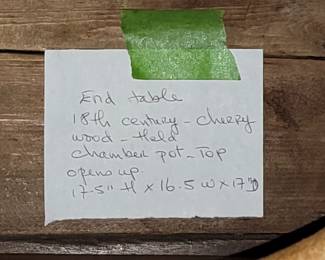 End table
18th century - cherry
wood - Held
chamber pot - Top
opens up.
17.5" H x 16.5 W x 17"D